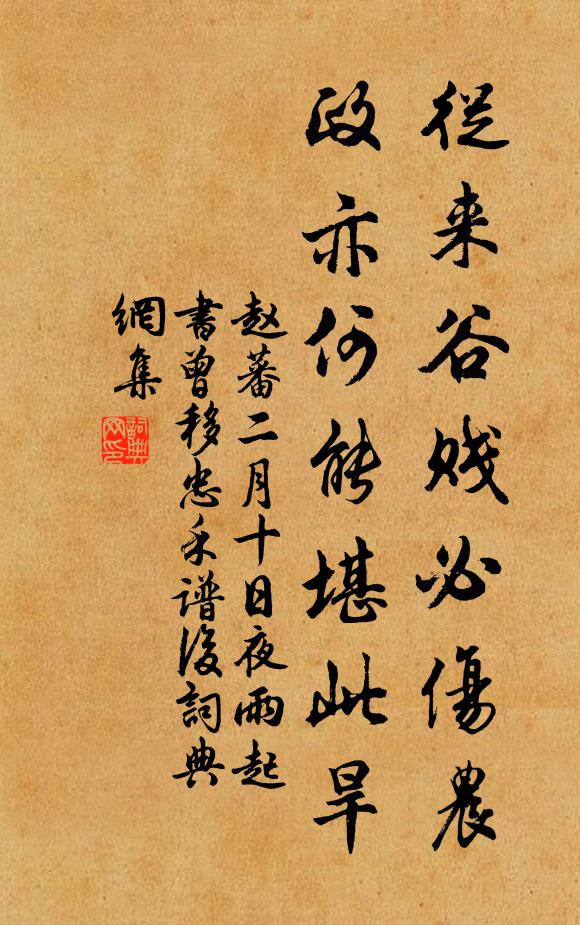 從来谷贱必傷農
政亦何能堪此旱
赵蕃二月十日夜雨起
書曾移忠禾谱後詞典
網集
詞典
网印